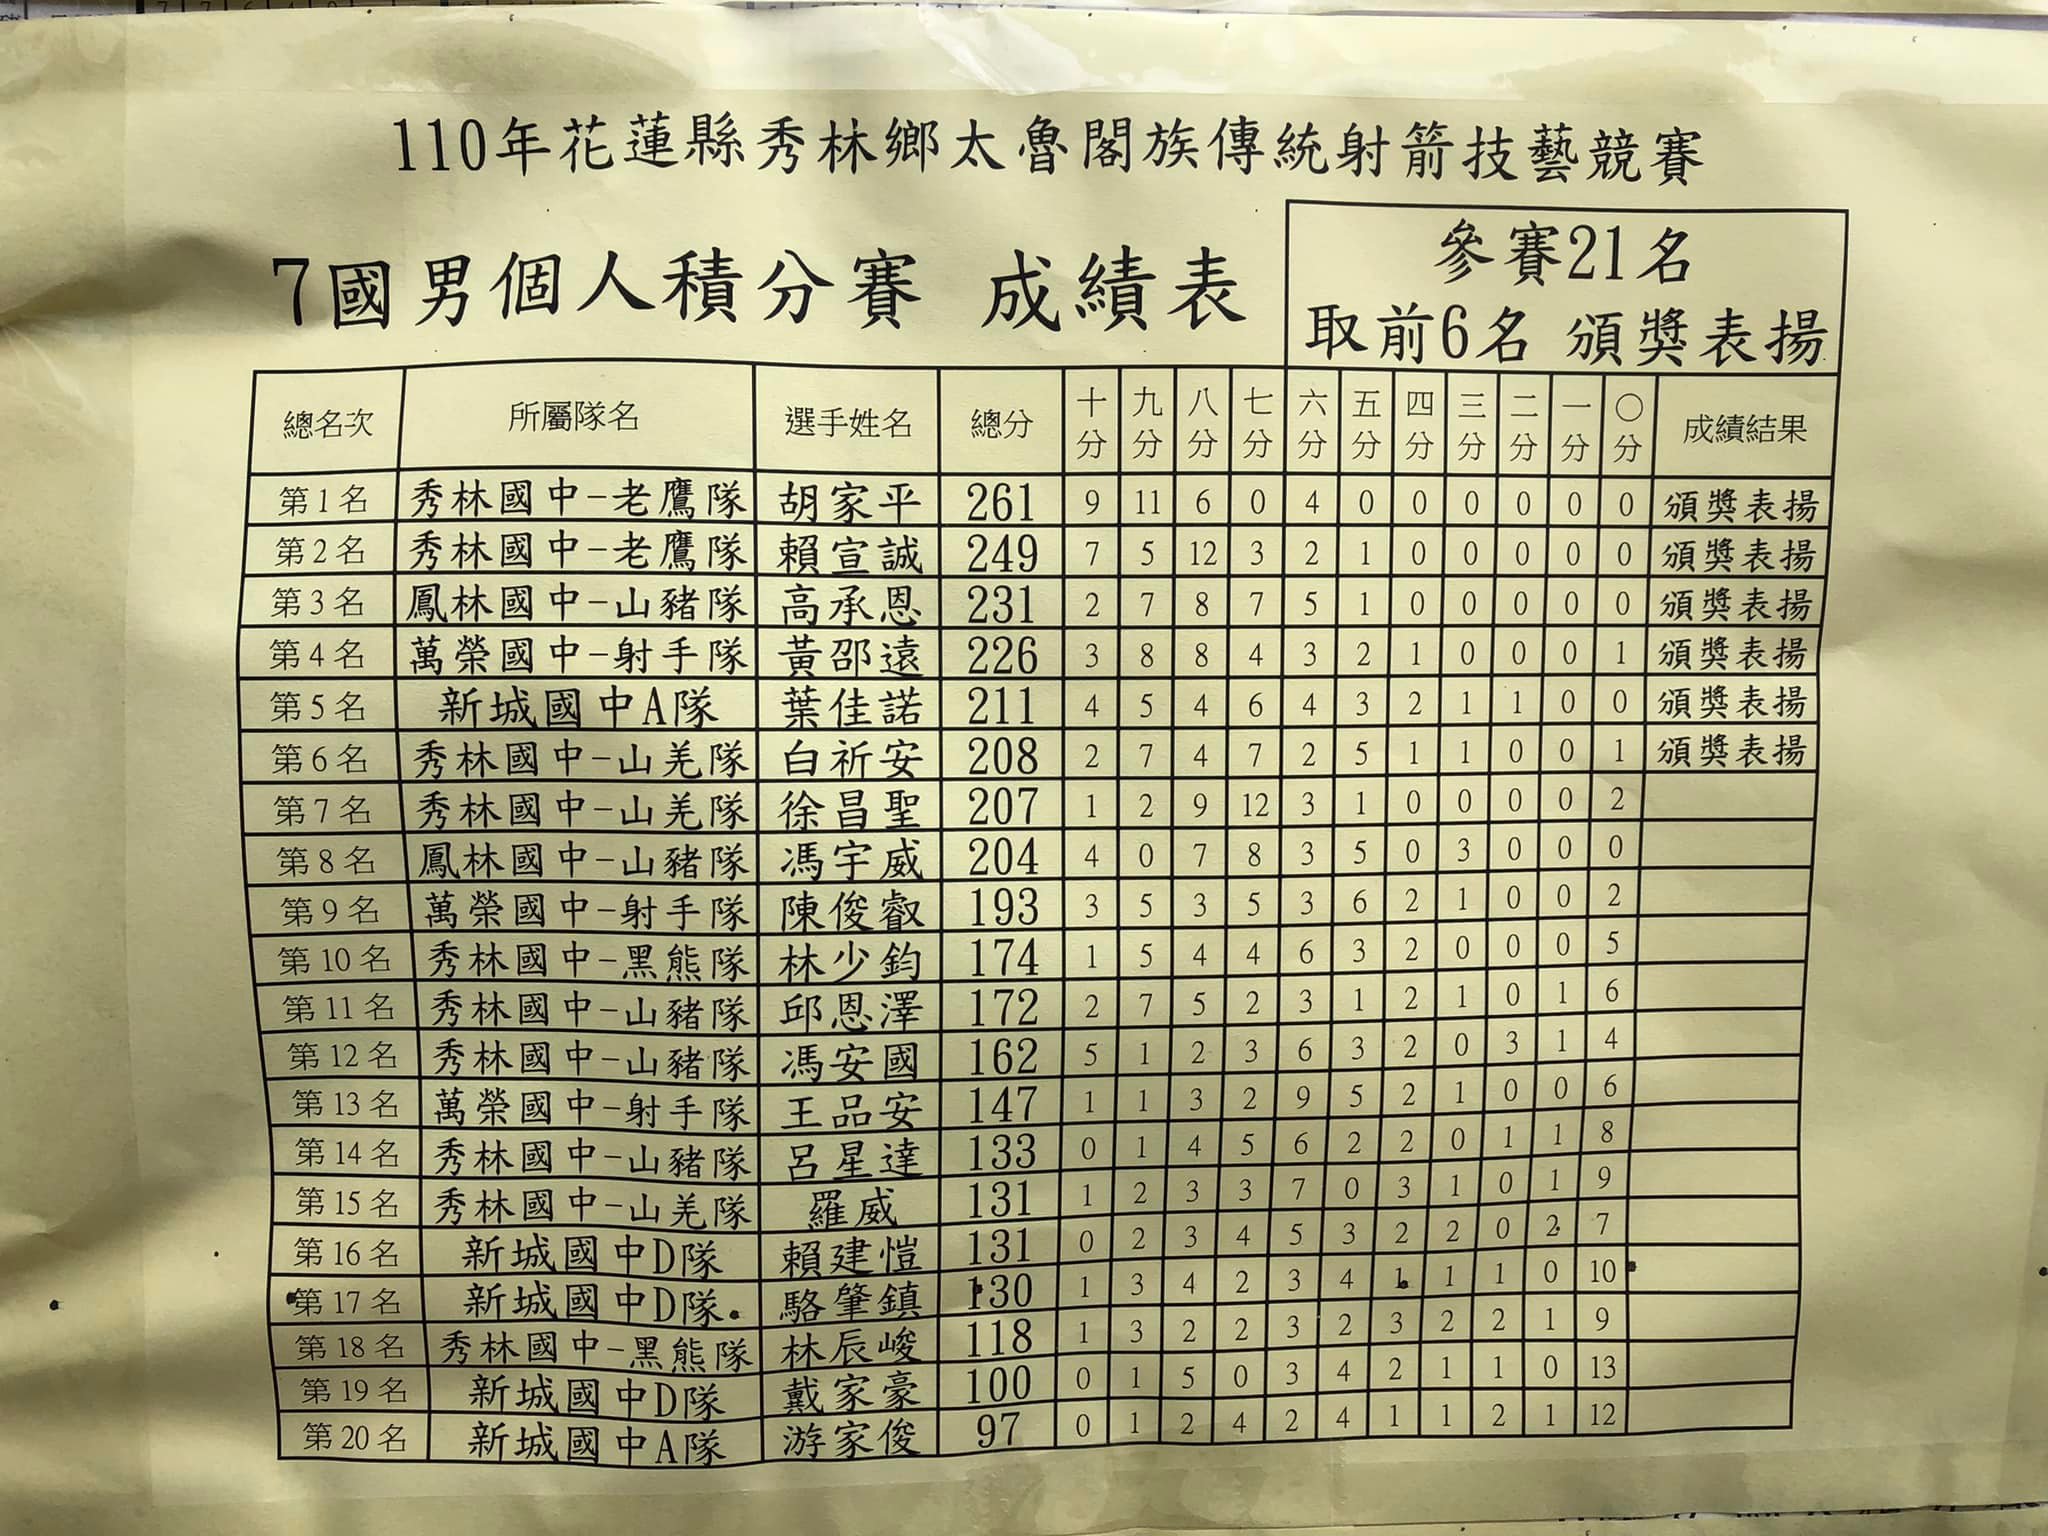 110年花蓮縣秀林鄉太魯閣族傳統射箭技藝競賽
7國男個人積分賽 成績表
參賽21名
取前6名 頒獎表揚
總名次 所屬隊名 選手姓名 總分 十分 九分 八分 七分 六分 五分 四分 三分 二分 一分 〇分 成績結果
第1名 秀林國中-老鷹隊 胡家平 261 9 11 6 0 4 0 0 0 0 0 0 頒獎表揚
第2名 秀林國中-老鷹隊 賴宣誠 249 7 5 12 3 2 1 0 0 0 0 0 頒獎表揚
第3名 鳳林國中-山豬隊 高承恩 231 2 7 8 7 5 1 0 0 0 0 0 頒獎表揚
第4名 萬榮國中-射手隊 黃邵遠 226 3 8 8 4 3 2 1 0 0 0 1 頒獎表揚
第5名 新城國中A隊 葉佳諾 211 4 5 4 6 4 3 2 1 1 0 0 頒獎表揚
第6名 秀林國中-山羌隊 白祈安 208 2 7 4 7 2 5 1 1 0 0 1 頒獎表揚
第7名 秀林國中-山羌隊 徐昌聖 207 1 2 9 12 3 1 0 0 0 0 2
第8名 鳳林國中-山豬隊 馮宇威 204 4 0 7 8 3 5 0 3 0 0 0
第9名 萬榮國中-射手隊 陳俊叡 193 3 5 3 5 3 6 2 1 0 0 2
第10名 秀林國中-黑熊隊 林少鈞 174 1 5 4 4 6 3 2 0 0 0 5
第11名 秀林國中-山豬隊 邱恩澤 172 2 7 5 2 3 1 2 1 0 1 6
第12名 秀林國中-山豬隊 馮安國 162 5 1 2 3 6 3 2 0 3 1 4
第13名 萬榮國中-射手隊 王品安 147 1 1 3 2 9 5 2 1 0 0 6
第14名 秀林國中-山豬隊 呂星達 133 0 1 4 5 6 2 2 0 1 1 8
第15名 秀林國中-山羌隊 羅威 131 1 2 3 3 7 0 3 1 0 1 9
第16名 新城國中D隊 賴建愷 131 0 2 3 4 5 3 2 2 0 2 7
第17名 新城國中D隊 駱肇鎮 130 1 3 4 2 3 4 1 1 1 0 10
第18名 秀林國中-黑熊隊 林辰峻 118 1 3 2 2 3 2 3 2 2 1 9
第19名 新城國中D隊 戴家豪 100 0 1 5 0 3 4 2 1 1 0 13
第20名 新城國中A隊 游家俊 97 0 1 2 4 2 4 1 1 2 1 12